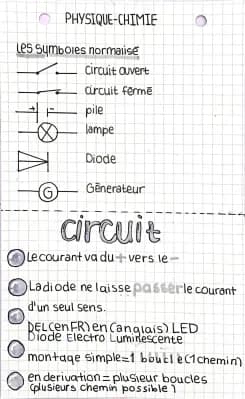 PHYSIQUE-CHIMIE
Les symboles normalisé
Circuit ouvert
circuit fermé
pile
lampe
Diode
G
Génerateur
circuit
Le courant va du + vers le -
La diode ne laisse passer le courant
d'un seul sens.
DEL(en FR) en (anglais) LED
Diode Electro Luminescente
montage simple=1 boucle (1 chemin)
en derivation = plusieur boucles
(plusieurs chemin possible)